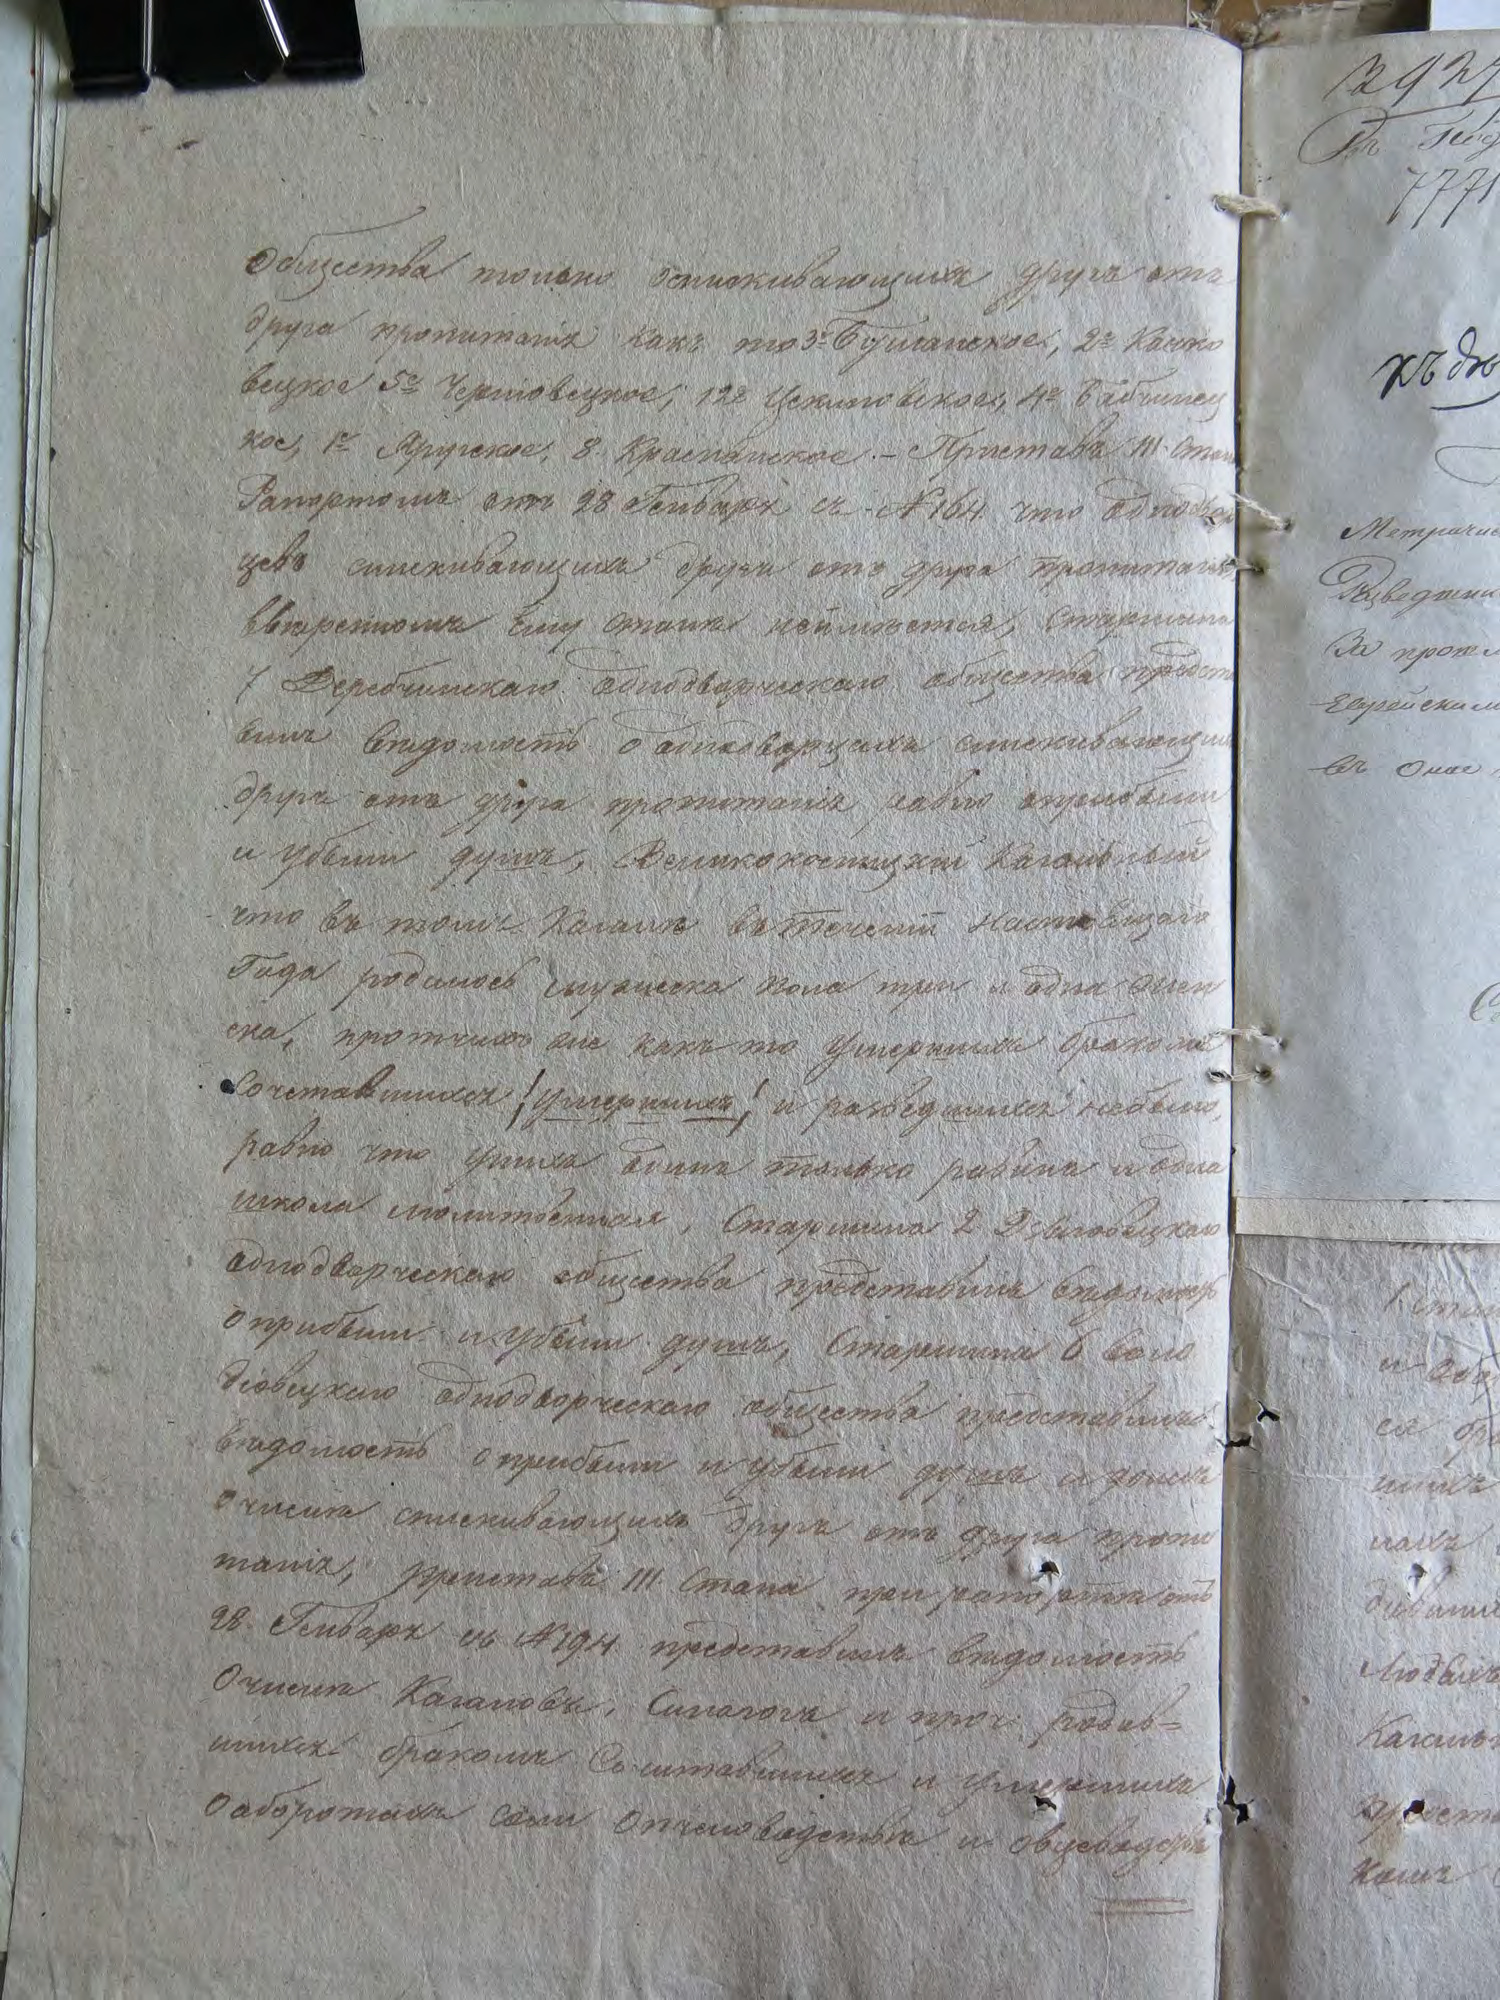 Общества только оснискивающихъ другъ отъ
друга пропитанія какъ то 3е Бушанское, 2е Качко
вецкое 5е Черновецкое, 12е Цекиновское, 4е Бабчинец
кое, 1е Яругское, 8 Краснянское. – Приставъ III Стана
Рапортомъ отъ 28 Генваря съ № 164 что однодвор
цевъ снискивающихъ другъ отъ друга пропитанія
ввѣренномъ ему станѣ неимѣется, Старшина
7 Деребчинскаго однодворческаго общества предста
вилъ вѣдомость о однодворцахъ снискивающихъ
другъ отъ друга пропитанія равно оприбыли
и убыли душъ, Великокосницкій Кагальный
что въ томъ Кагалѣ въ теченіи настоящаго
Года родилось мужеска пола три и одна жен
ска, протчихъ же какъ то умершихъ бракомъ
Сочетавшихся /умершихъ/ и разведшихся небыло,
равно что унихъ одинъ только равинъ и одна
школа молитвенная, Старшина 2
однодворческаго общества представилъ вѣдомость
оприбыли и убыли душъ, Старшина 6 Воло
діовецкаго однодворческаго общества представилъ
вѣдомость оприбыли и убыли душъ и
очислѣ снискивающихъ другъ отъ друга пропи
танія, приставъ III. Стана при рапортѣ отъ
28. Генваря съ № 194. представилъ вѣдомость
Очислѣ Кагаловъ, Синагогъ и проч: родив=
шихся бракомъ Сочетавшихся и умершихъ
Ооборотахъ Соли Опчеловодствѣ и овцеводствѣ
3924
Въ
777
къ дѣ
За
въ Оное
1 Ста
и
ся бра
Кагальн